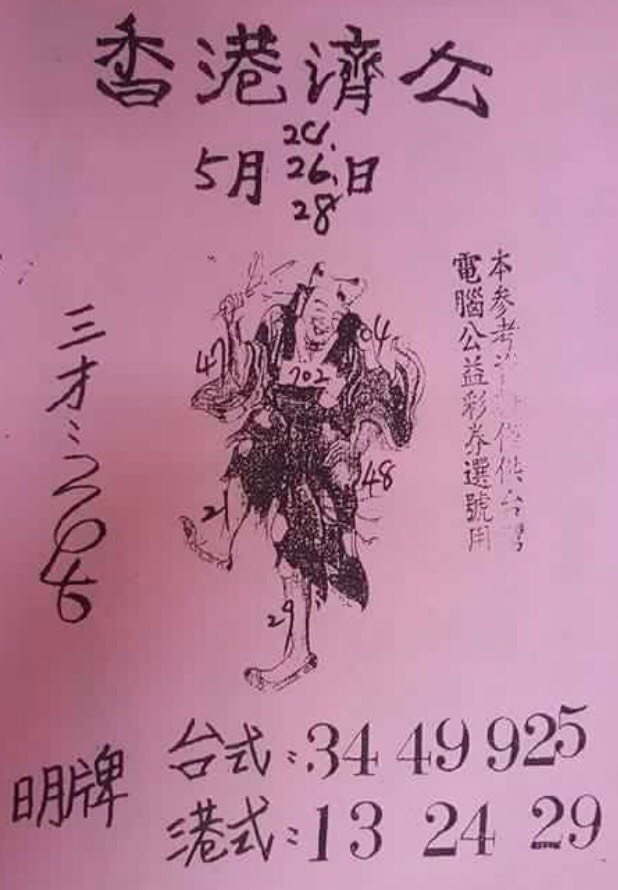 香港濟公
24.
5月26.日
28
本參考 僅供台灣
電腦公益彩券選號用
04
47
702
48
21
29
三才:2646
明牌
台式:34 49 925
港式:13 24 29